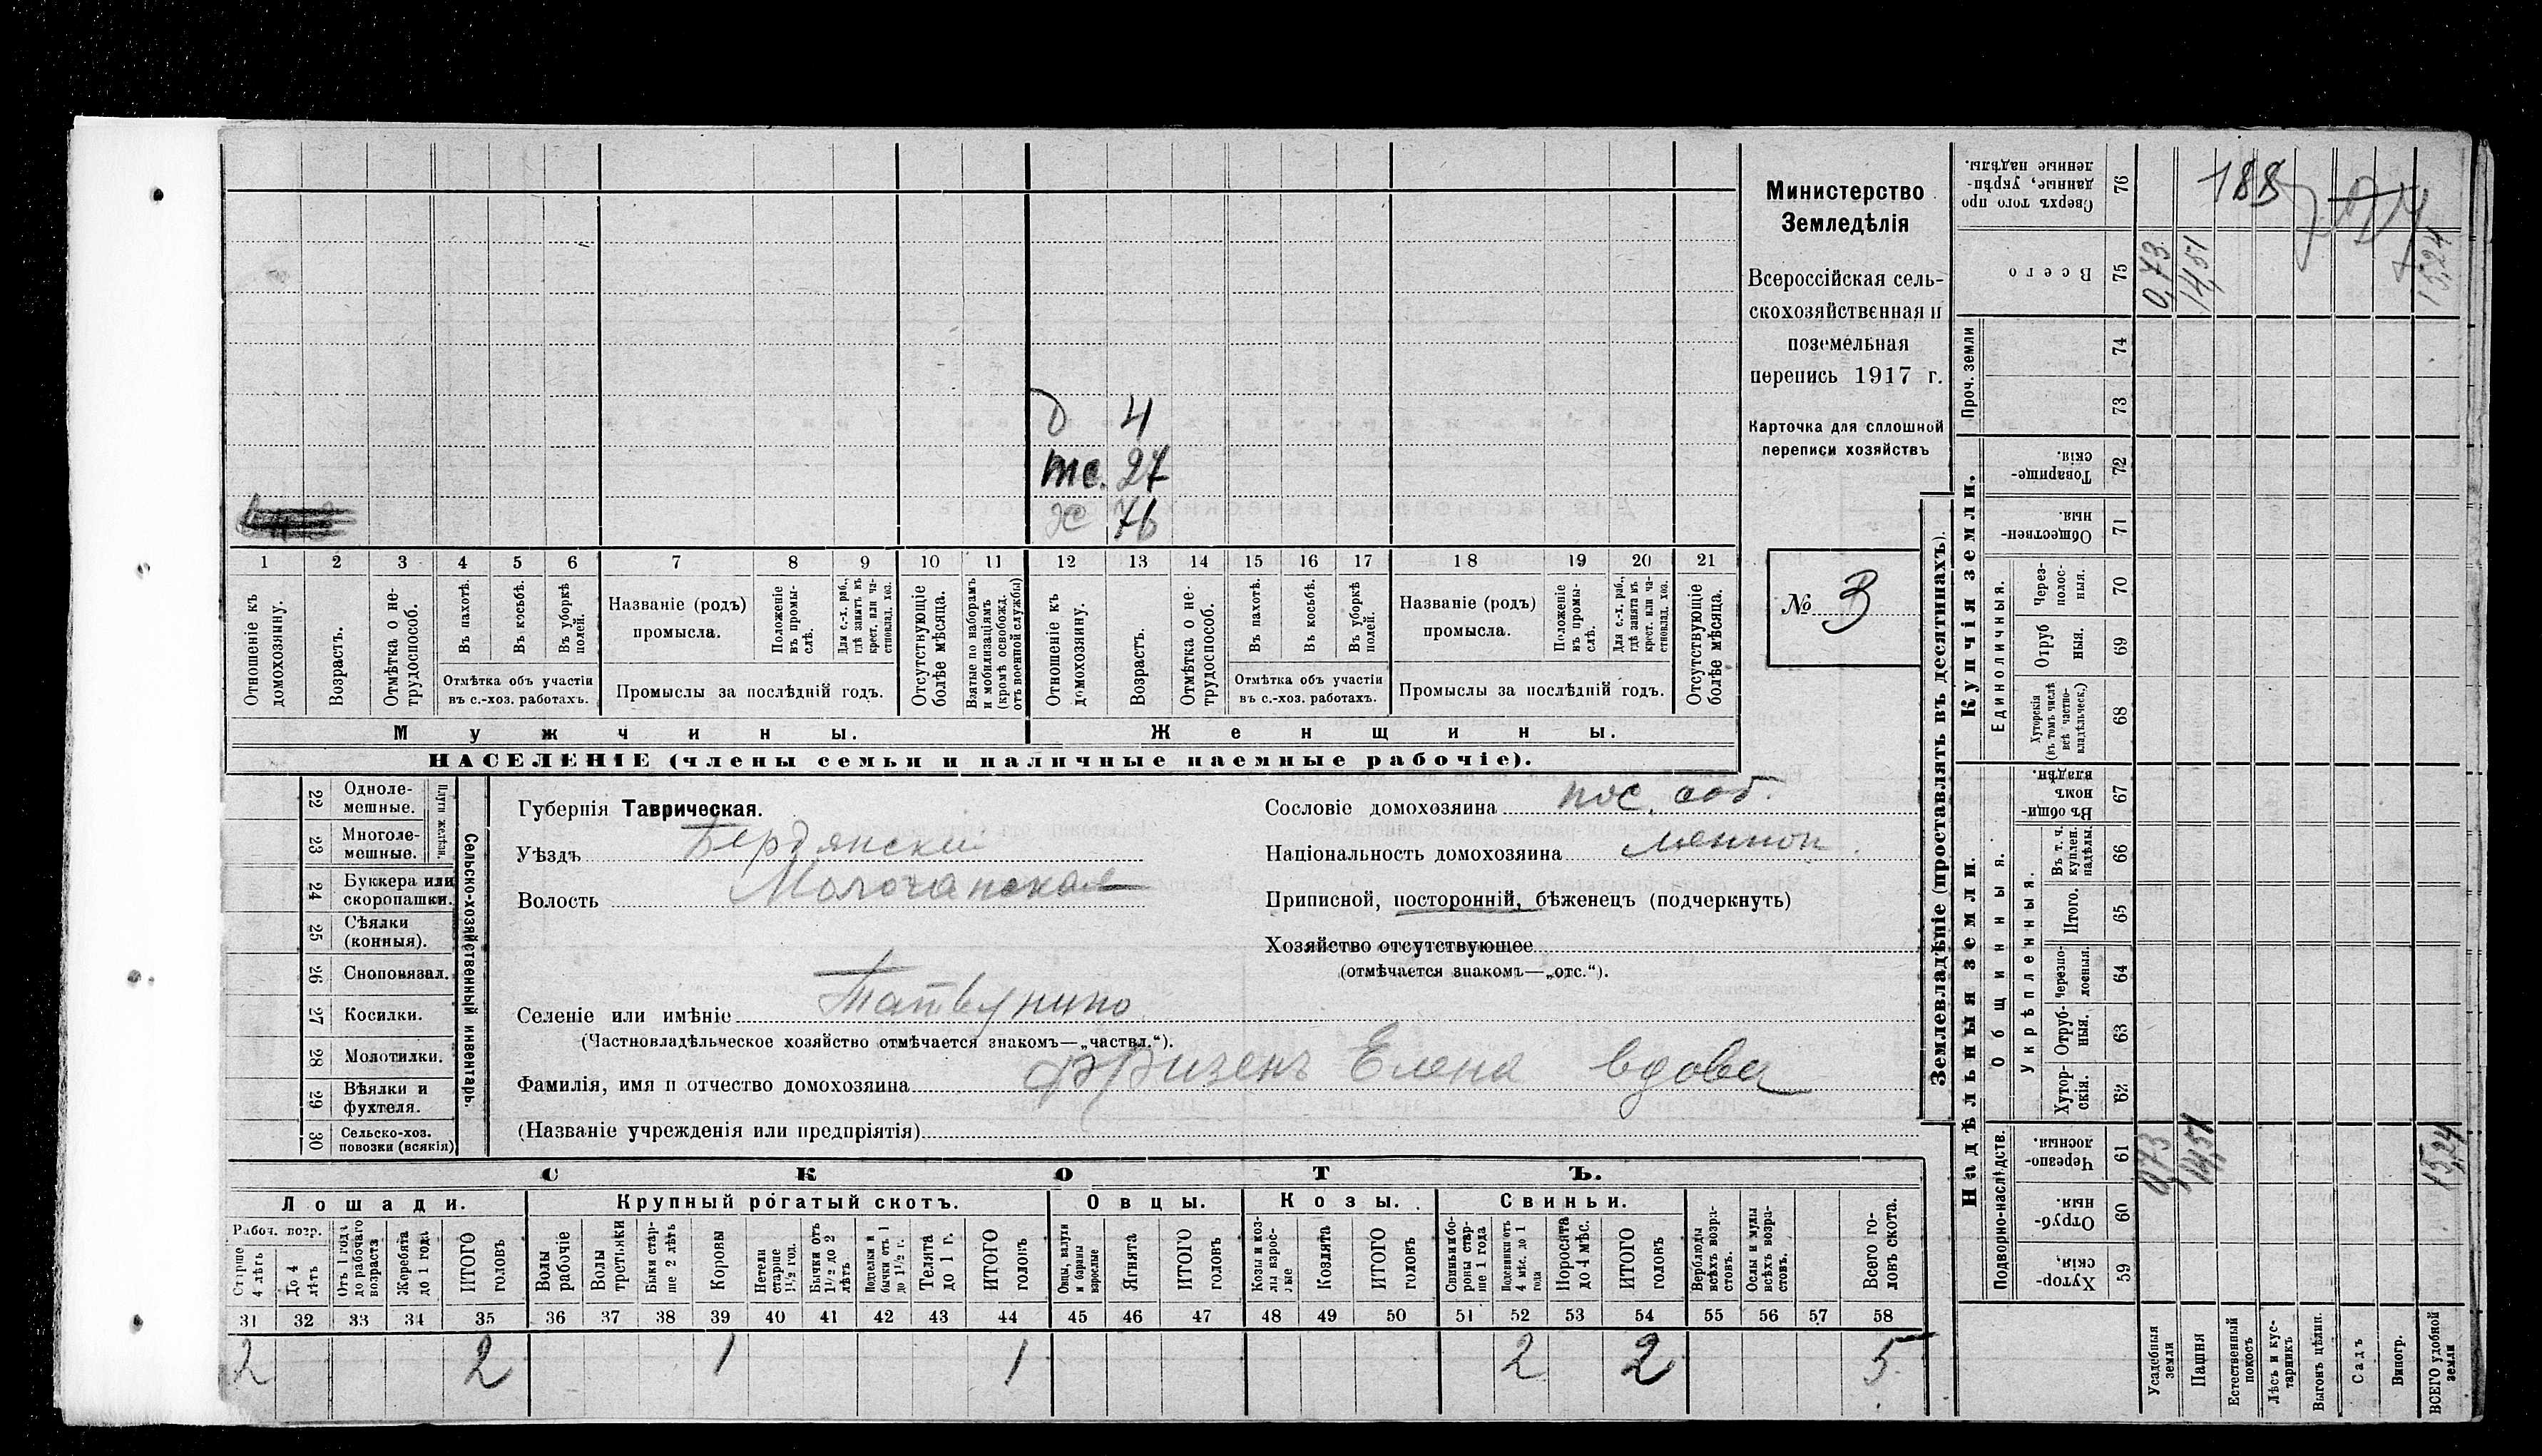 Министерство
Земледѣлія
Всероссійская сель-
скохозяйственная и
поземельная
перепись 1917 г.
Карточка для сплошной
переписи хозяйствъ
№ 3
д 4
27
ж 76
1 2 3 4 5 6 7 8 9 10 11 12 13 14 15 16 17 18 19 20 21
Отношеніе къ домохозяину.
Возрастъ.
Отмѣтка о не-трудоспособ.
Въ пахотѣ.
Въ косьбѣ.
Въ уборкѣ полей.
Отмѣтка объ участіи
въ с.-хоз. работахъ.
Названіе (родъ)
промысла.
Положеніе въ промы-слѣ.
Для с.-х. раб., гдѣ занятъ въ крест. или ча-стновлад. хоз.
Промыслы за послѣдній годъ.
Отсутствующіе болѣе мѣсяца.
Взятые по наборамъ и мобилизаціямъ (кромѣ освобожд. отъ военной службы)
Отношеніе къ домохозяину.
Возрастъ.
Отмѣтка о не-трудоспособ.
Въ пахотѣ.
Въ косьбѣ.
Въ уборкѣ полей.
Отмѣтка объ участіи
въ с.-хоз. работахъ.
Названіе (родъ)
промысла.
Положеніе въ промы-слѣ.
Для с.-х. раб., гдѣ занята въ крест. или ча-стновлад. хоз.
Промыслы за послѣдній годъ.
Отсутствующіе болѣе мѣсяца.
Мужчины.
Женщины.
НАСЕЛЕНІЕ (члены семьи и наличные наемные рабочіе).
22 Одноле-мешные.
23 Многоле-мешные.
Плуги желѣзн.
24 Буккера или скоропашки.
25 Сѣялки (конныя).
26 Сноповязал.
27 Косилки.
28 Молотилки.
29 Вѣялки и фухтеля.
30 Сельско-хоз. повозки (всякія)
Сельско-хозяйственный инвентарь.
Губернія Таврическая.
Уѣздъ Бердянскій
Волость Молочанская
Селеніе или имѣніе
(Частновладѣльческое хозяйство отмѣчается знакомъ—„частвл.“).
Фамилія, имя и отчество домохозяина Фризенъ Елена вдова
(Названіе учрежденія или предпріятія)
Сословіе домохозяина пос. соб.
Національность домохозяина меннон.
Приписной, посторонній, бѣженецъ (подчеркнуть)
Хозяйство отсутствующее
(отмѣчается знакомъ—„отс.“).
СКОТЪ.
Лошади.
Крупный рогатый скотъ.
Овцы.
Козы.
Свиньи.
Рабоч. возр.
Старше 4 лѣтъ
До 4 лѣтъ
Отъ 1 года до рабочаго возраста
Жеребята до 1 года
ИТОГО головъ
Волы рабочіе
Волы третьяки
Быки стар-ше 2 лѣтъ
Коровы
Нетели старше 1½ год.
Бычки отъ 1½ до 2 лѣтъ
Подтелки и бычки отъ 1 до 1½ г.
Телята до 1 г.
ИТОГО головъ
Овцы, валухи и бараны взрослые
Ягнята
ИТОГО головъ
Козы и коз-лы взрос-лые
Козлята
ИТОГО головъ
Свиньи и бо-ровы стар-ше 1 года
Подсвинки отъ 4 мѣс. до 1 года
Поросята до 4 мѣс.
ИТОГО головъ
Верблюды всѣхъ возра-стовъ.
Ослы и мулы всѣхъ возра-стовъ.
Всего го-ловъ скота.
31 32 33 34 35 36 37 38 39 40 41 42 43 44 45 46 47 48 49 50 51 52 53 54 55 56 57 58
2 2 1 1 2 2 5
Землевладѣніе (проставлять въ десятинахъ).
Надѣльныя земли.
Купчія земли.
Проч. земли
Подворно-наслѣдств.
Общинныя.
Укрѣпленныя.
Единоличныя.
Сверхъ того про-данные, укрѣп-ленные надѣлы. 76
Всего 75
74
73
Товарище-скія. 72
Обществен-ныя. 71
Через-полос-ныя. 70
Отруб-ныя. 69
Хуторскія (въ томъ числѣ всѣ частно-владѣльческ.) 68
Въ общи-номъ владѣн. 67
Въ т. ч. куплен. надѣлы. 66
Итого. 65
Черезпо-лосныя. 64
Отруб-ныя. 63
Хутор-скія. 62
Черезпо-лосныя. 61
Отруб-ныя. 60
Хутор-скія. 59
188
0,73
14,51
15,24
0,73
14,51
15,24
Усадебныя земли
Пашня
Естественный покосъ
Лѣсъ и кус-тарникъ
Выгонъ цѣлин.
Садъ
Виногр.
ВСЕГО удобной земли